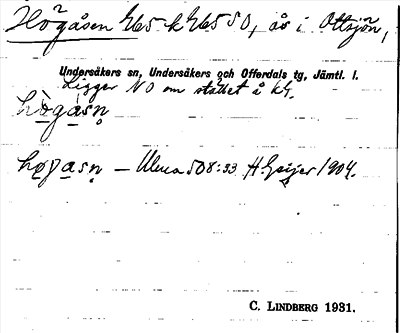 Högåsen 265 k 265 SO, ås i Ottsjön,
Undersåkers sn, Undersåkers och Offerdals tg, Jämtl. l.
Ligger NO om stället å kt.
hògàsn̥
høgasn̥ – Ulma 508:33 H. Geijer 1904.
C. LINDBERG 1931.